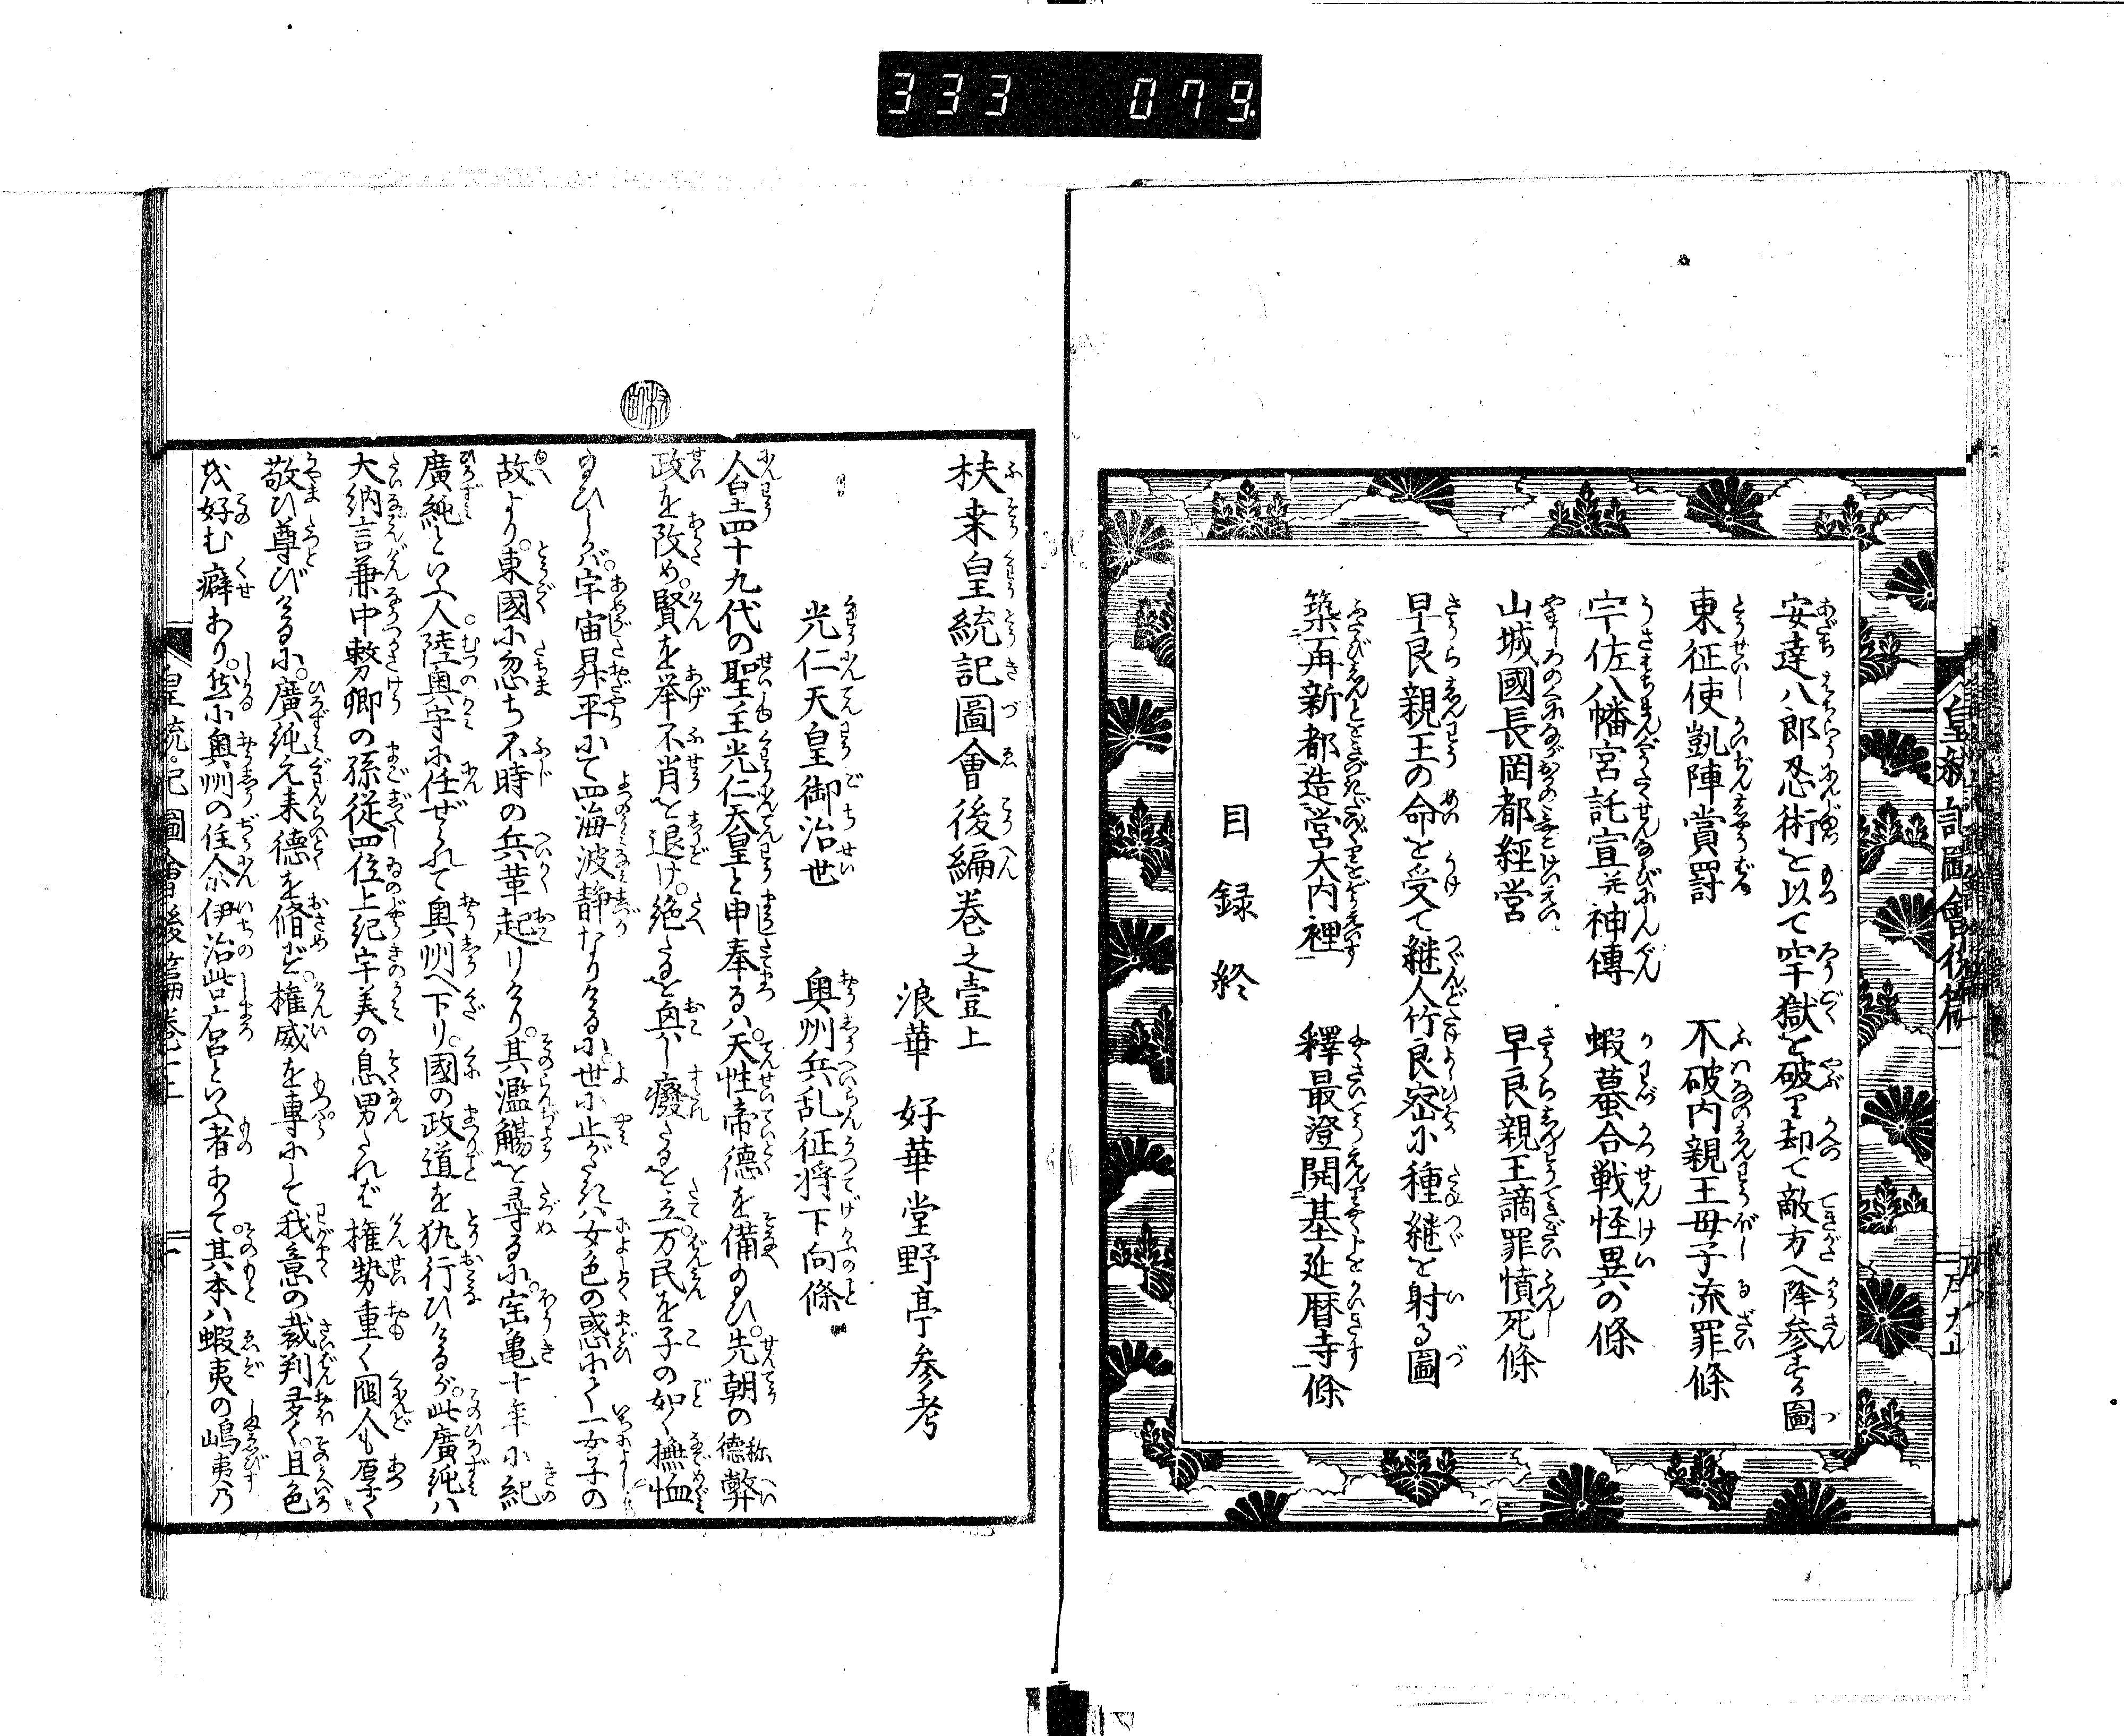 333 079
安達八郎忍術を以て牢獄を破り却て敵方へ降参する圖
東征使凱陣賞罰 不破内親王母子流罪條
宇佐八幡宮託宣并神傳 蝦蟇合戦怪異の條
山城國長岡都経営 早良親王謫罪憤死條
早良親王の命を受て継人竹良密に種継を射る圖
築再新都造営大内裡 釋最澄開基延暦寺條
目録終
扶桒皇統記圖會後編巻之壹上
浪華 好華堂野亭参考
光仁天皇御治世 奥州兵乱征将下向條
人皇四十九代の聖主光仁天皇と申奉るハ天性帝徳を備給ひ先朝の徳弊
政を改め賢を挙不肖を退け絶たるを興し癈たるを立万民を子の如く撫恤
給ひしかバ宇宙昇平にて四海波静なりけるに世に止がたきハ女色の惑にて一女子の
故より東國に忽ち不時の兵革起りけり其濫觴を尋るに宝亀十年に紀
廣純といふ人陸奥守に任ぜられて奥州へ下り國の政道を執行ひけるが此廣純ハ
大納言兼中務卿の孫従四位上紀宇美の息男たれば権勢重く國人も厚く
敬ひ尊びけるに廣純元来徳を脩めず権威を専にして我意の裁判多く且色
を好む癖あり然に奥州の住人伊治呰呂といふ者ありて其本ハ蝦夷の嶋夷乃
皇統記圖會後篇巻一上